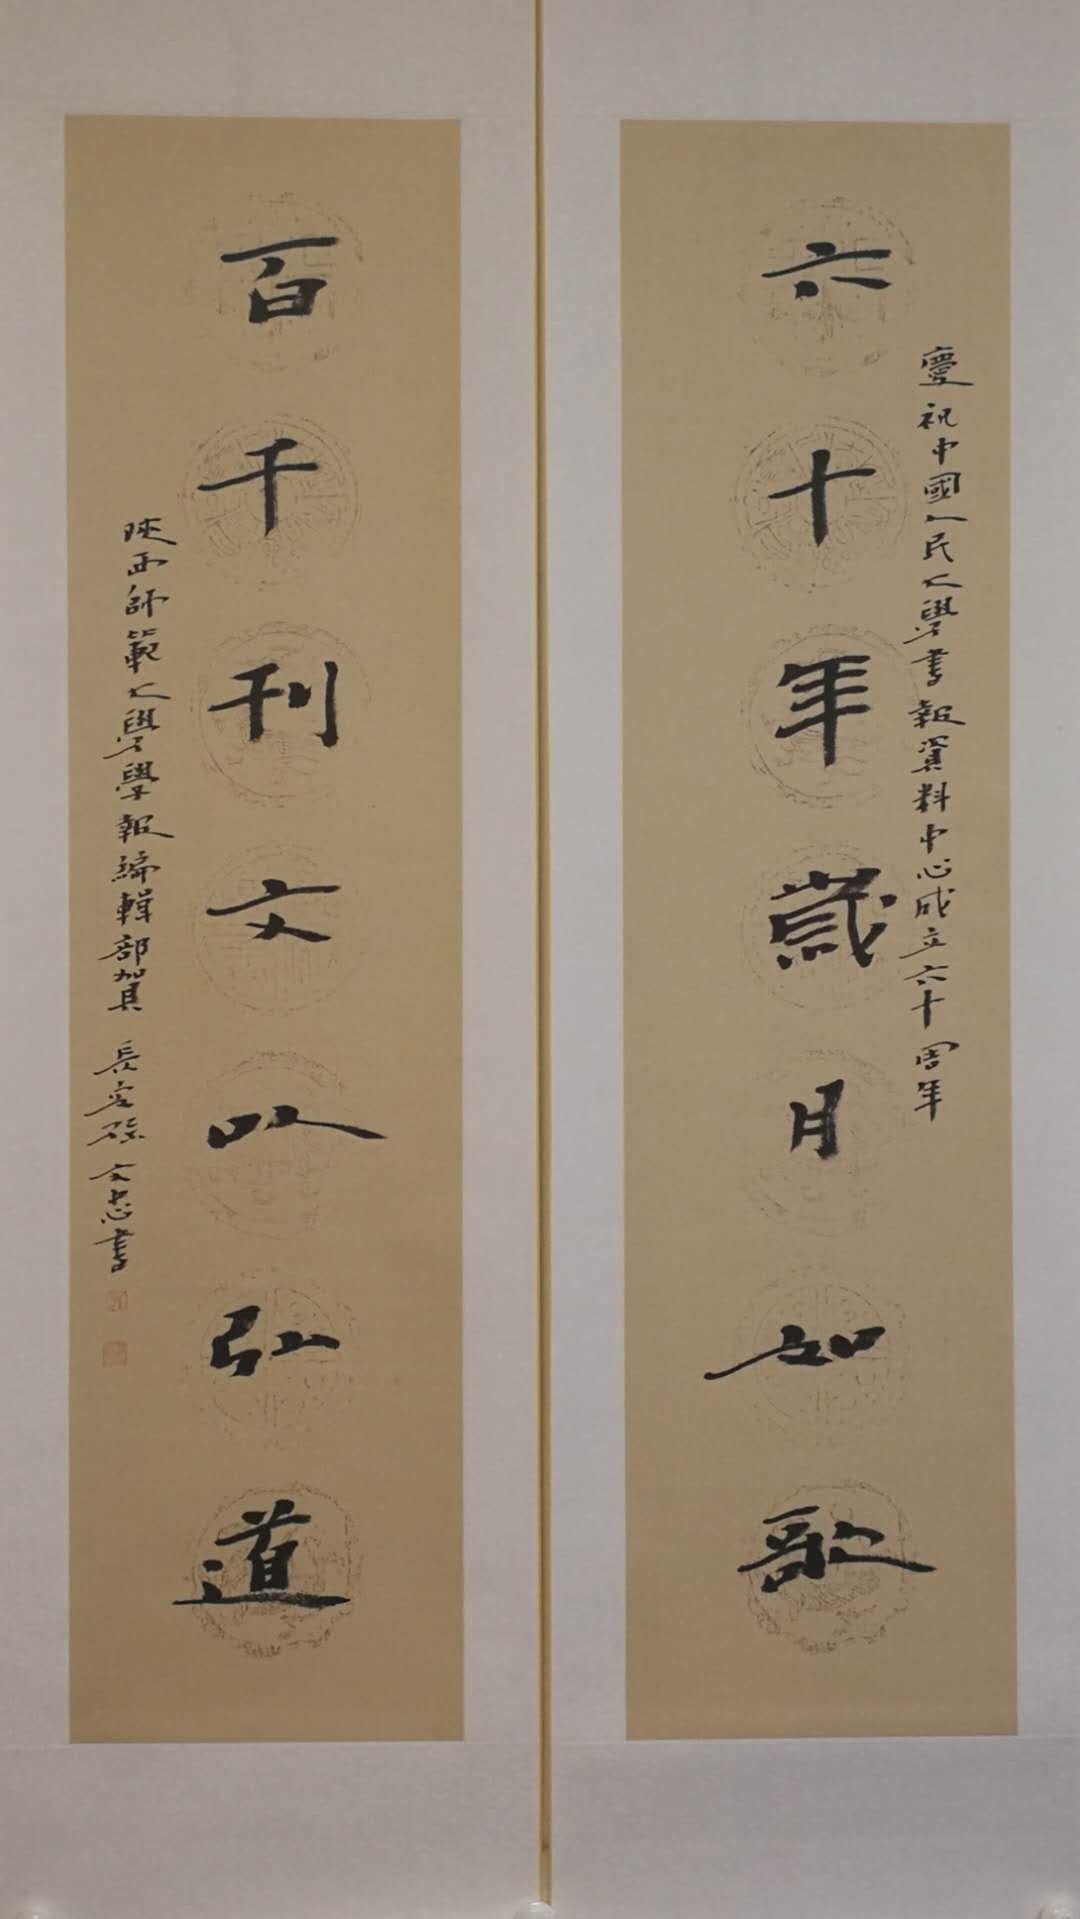 六十年歲月如歌
慶祝中國人民大學書報資料中心成立六十周年
百千刊文以弘道
陝西師範大學學報編輯部賀 長安孫文忠書